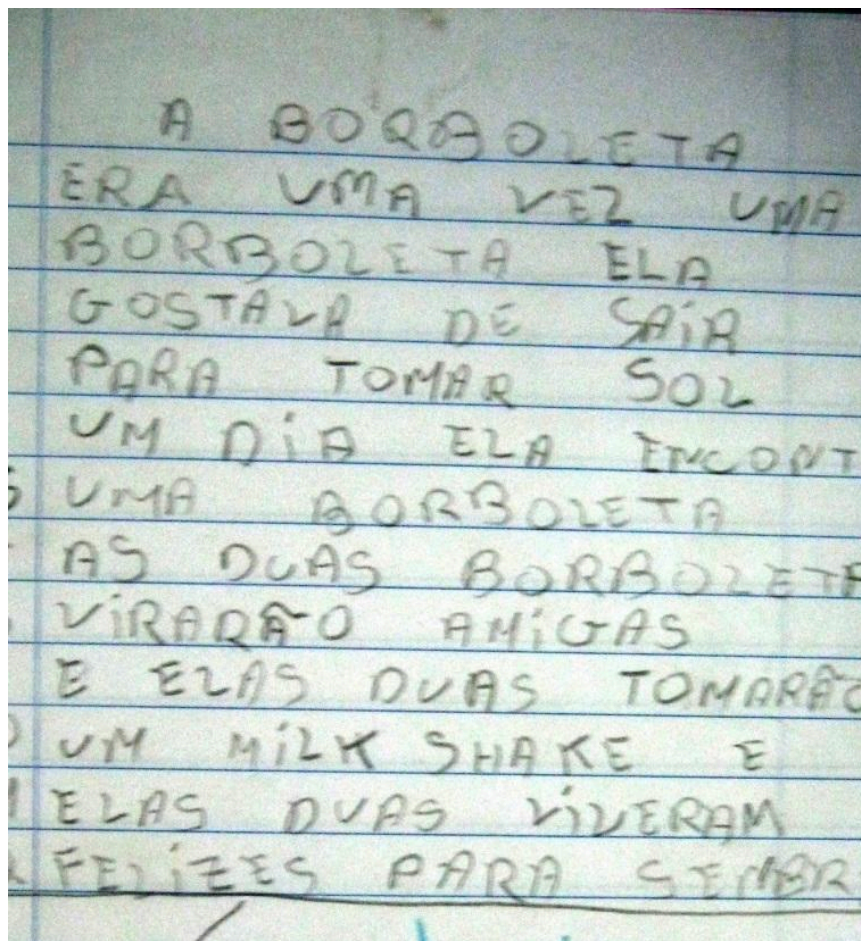 A BORBOLETA
ERA UMA VEZ UMA
BORBOLETA ELA
GOSTAVA DE SAIR
PARA TOMAR SOL
UM DIA ELA ENCONT
UMA BORBOLETA
AS DUAS BORBOLETA
VIRARÃO AMIGAS
E ELAS DUAS TOMARÃO
UM MILK SHAKE E
ELAS DUAS VIVERAM
FELIZES PARA SEMBR